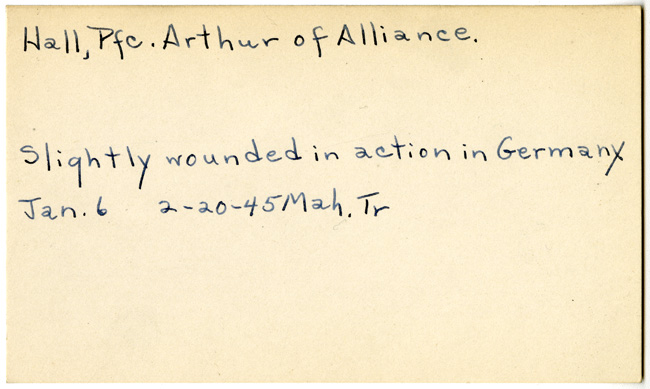 Hall, Pfc. Arthur of Alliance.
Slightly wounded in action in Germany
Jan. 6 2-20-45 Mah. Tr